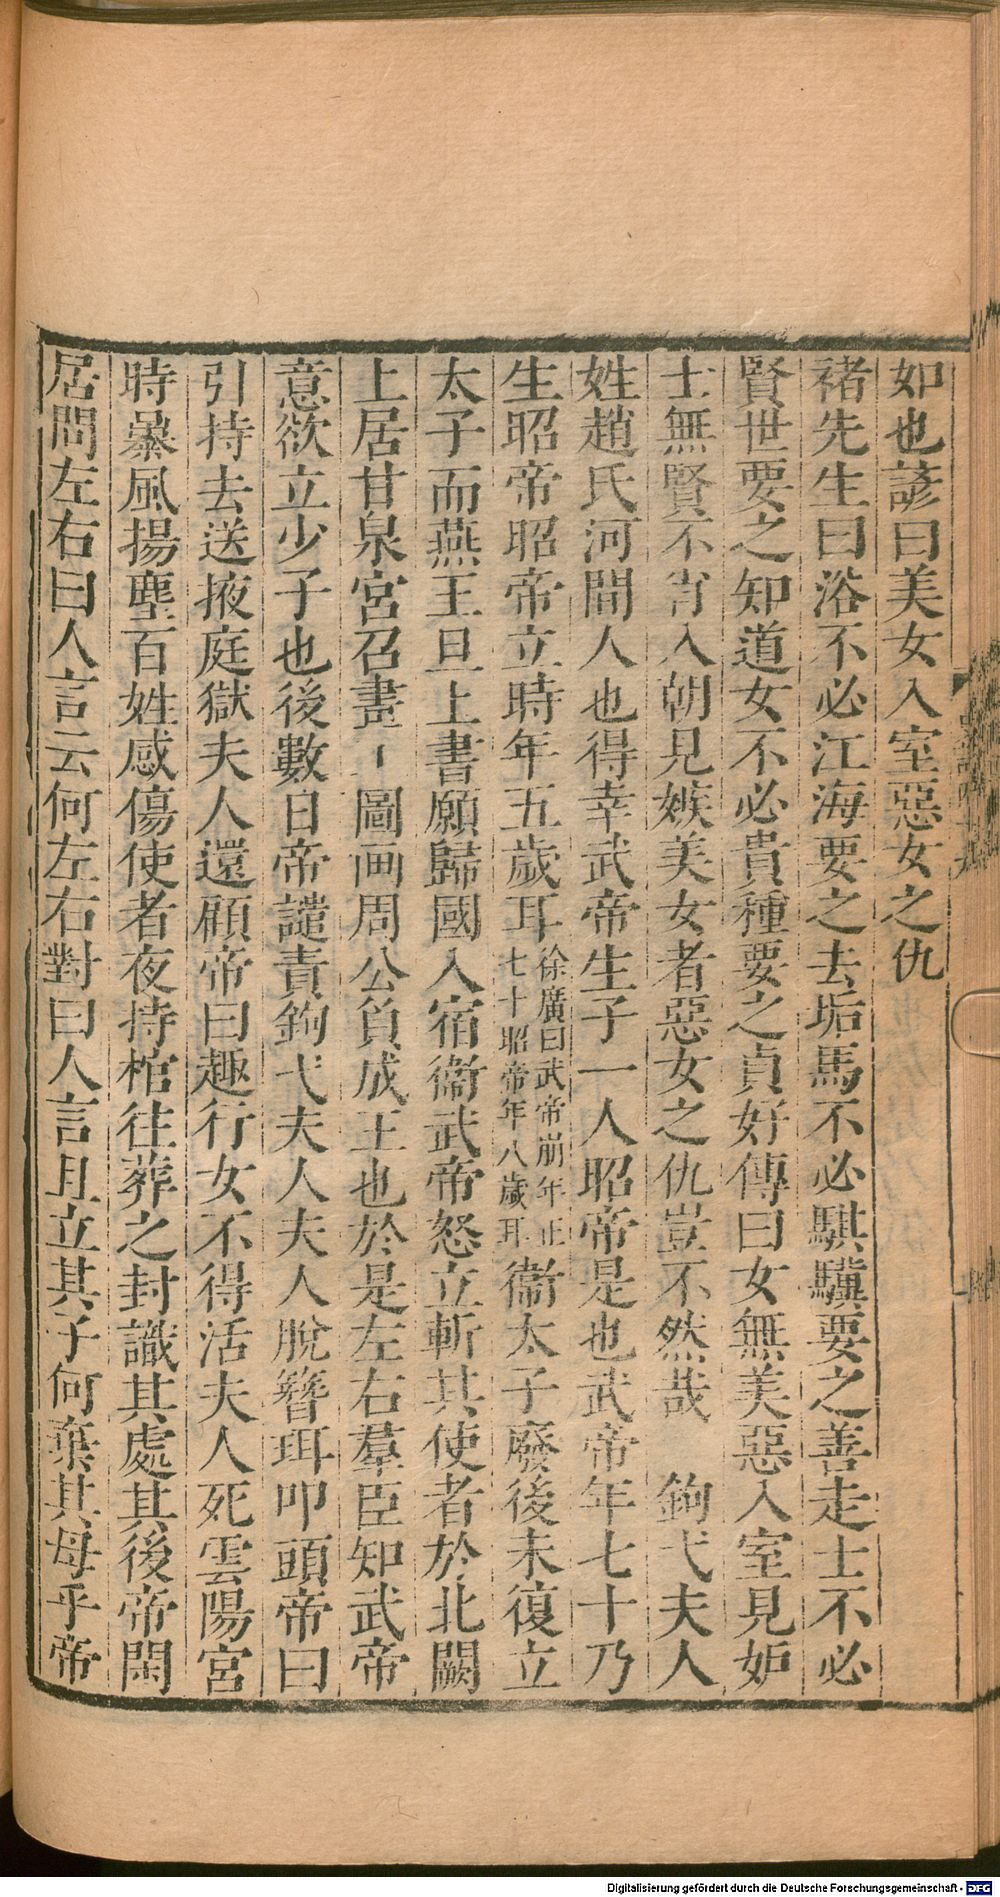 如也諺曰美女入室惡女之仇
褚先生曰浴不必江海要之去垢馬不必騏驥要之善走士不必
賢世要之知道女不必貴種要之貞好傳曰女無美惡入室見妒
士無賢不肖入朝見嫉美女者惡女之仇豈不然哉　鉤弋夫人
姓趙氏河間人也得幸武帝生子一人昭帝是也武帝年七十乃
生昭帝昭帝立時年五歲耳徐廣曰武帝崩年正七十昭帝年八歲耳衞太子廢後未復立
太子而燕王旦上書願歸國入宿衞武帝怒立斬其使者於北闕
上居甘泉宮召畫工圖画周公負成王也於是左右羣臣知武帝
意欲立少子也後數日帝譴責鉤弋夫人夫人脫簪珥叩頭帝曰
引持去送掖庭獄夫人還顧帝曰趣行女不得活夫人死雲陽宮
時暴風揚塵百姓感傷使者夜持棺往葬之封識其處其後帝閑
居問左右曰人言云何左右對曰人言且立其子何棄其母乎帝
Digitalisierung gefördert durch die Deutsche Forschungsgemeinschaft - DFG